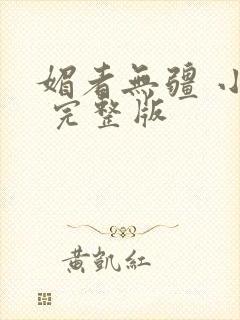 媚者無疆 小
完整版
黃凱紅